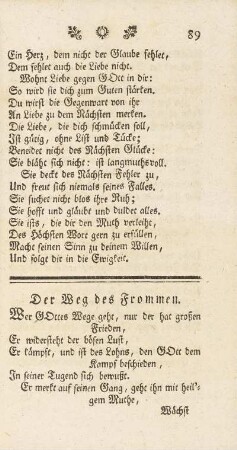 89
Ein Herz, dem nicht der Glaube fehlet,
Dem fehlet auch die Liebe nicht.
Wohnt Liebe gegen GOtt in dir:
So wird sie dich zum Guten stärken.
Du wirst die Gegenwart von ihr
An Liebe zu dem Nächsten merken.
Die Liebe, die dich schmücken soll,
Ist gütig, ohne List und Tücke;
Beneidet nicht des Nächsten Glücke:
Sie bläht sich nicht: ist langmuthsvoll.
Sie deckt des Nächsten Fehler zu,
Und freut sich niemals seines Falles.
Sie suchet nicht blos ihre Ruh;
Sie hofft und gläubt und duldet alles.
Sie ists, die dir den Muth verleiht,
Des Höchsten Wort gern zu erfüllen,
Macht seinen Sinn zu deinem Willen,
Und folgt dir in die Ewigkeit.
Der Weg des Frommen.
Wer GOttes Wege geht, nur der hat großen
Frieden,
Er widersteht der bösen Lust,
Er kämpft, und ist des Lohns, den GOtt dem
Kampf beschieden,
In seiner Tugend sich bewußt.
Er merkt auf seinen Gang, geht ihn mit heil'-
gem Muthe,
Wächst